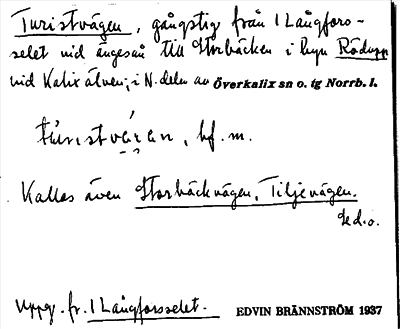 Turistvägen, gångstig från 1 Långfors-
selet vid ängesån till Storbäcken i byn Rödupp
vid Kalix älven; i N. delen av Överkalix sn o. tg Norrb. l.
túristvä̀gan, bf. m.
Kallas även Storbäckvägen, Tiljevägen.
Se d. o.
Uppg. fr. 1 Långforsselet.
EDVIN BRÄNNSTRÖM 1937